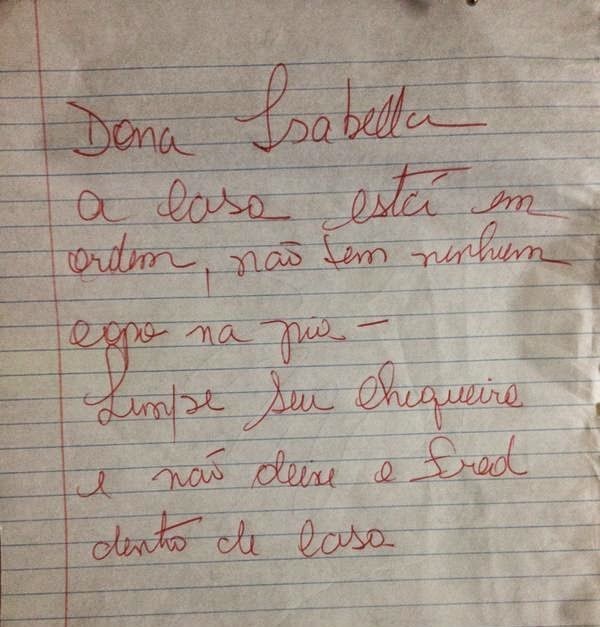 Dona Isabella
a casa está em
ordem, não tem nenhum
copo na pia -
Limpe seu chiqueiro
e não deixe o Fred
dentro de casa